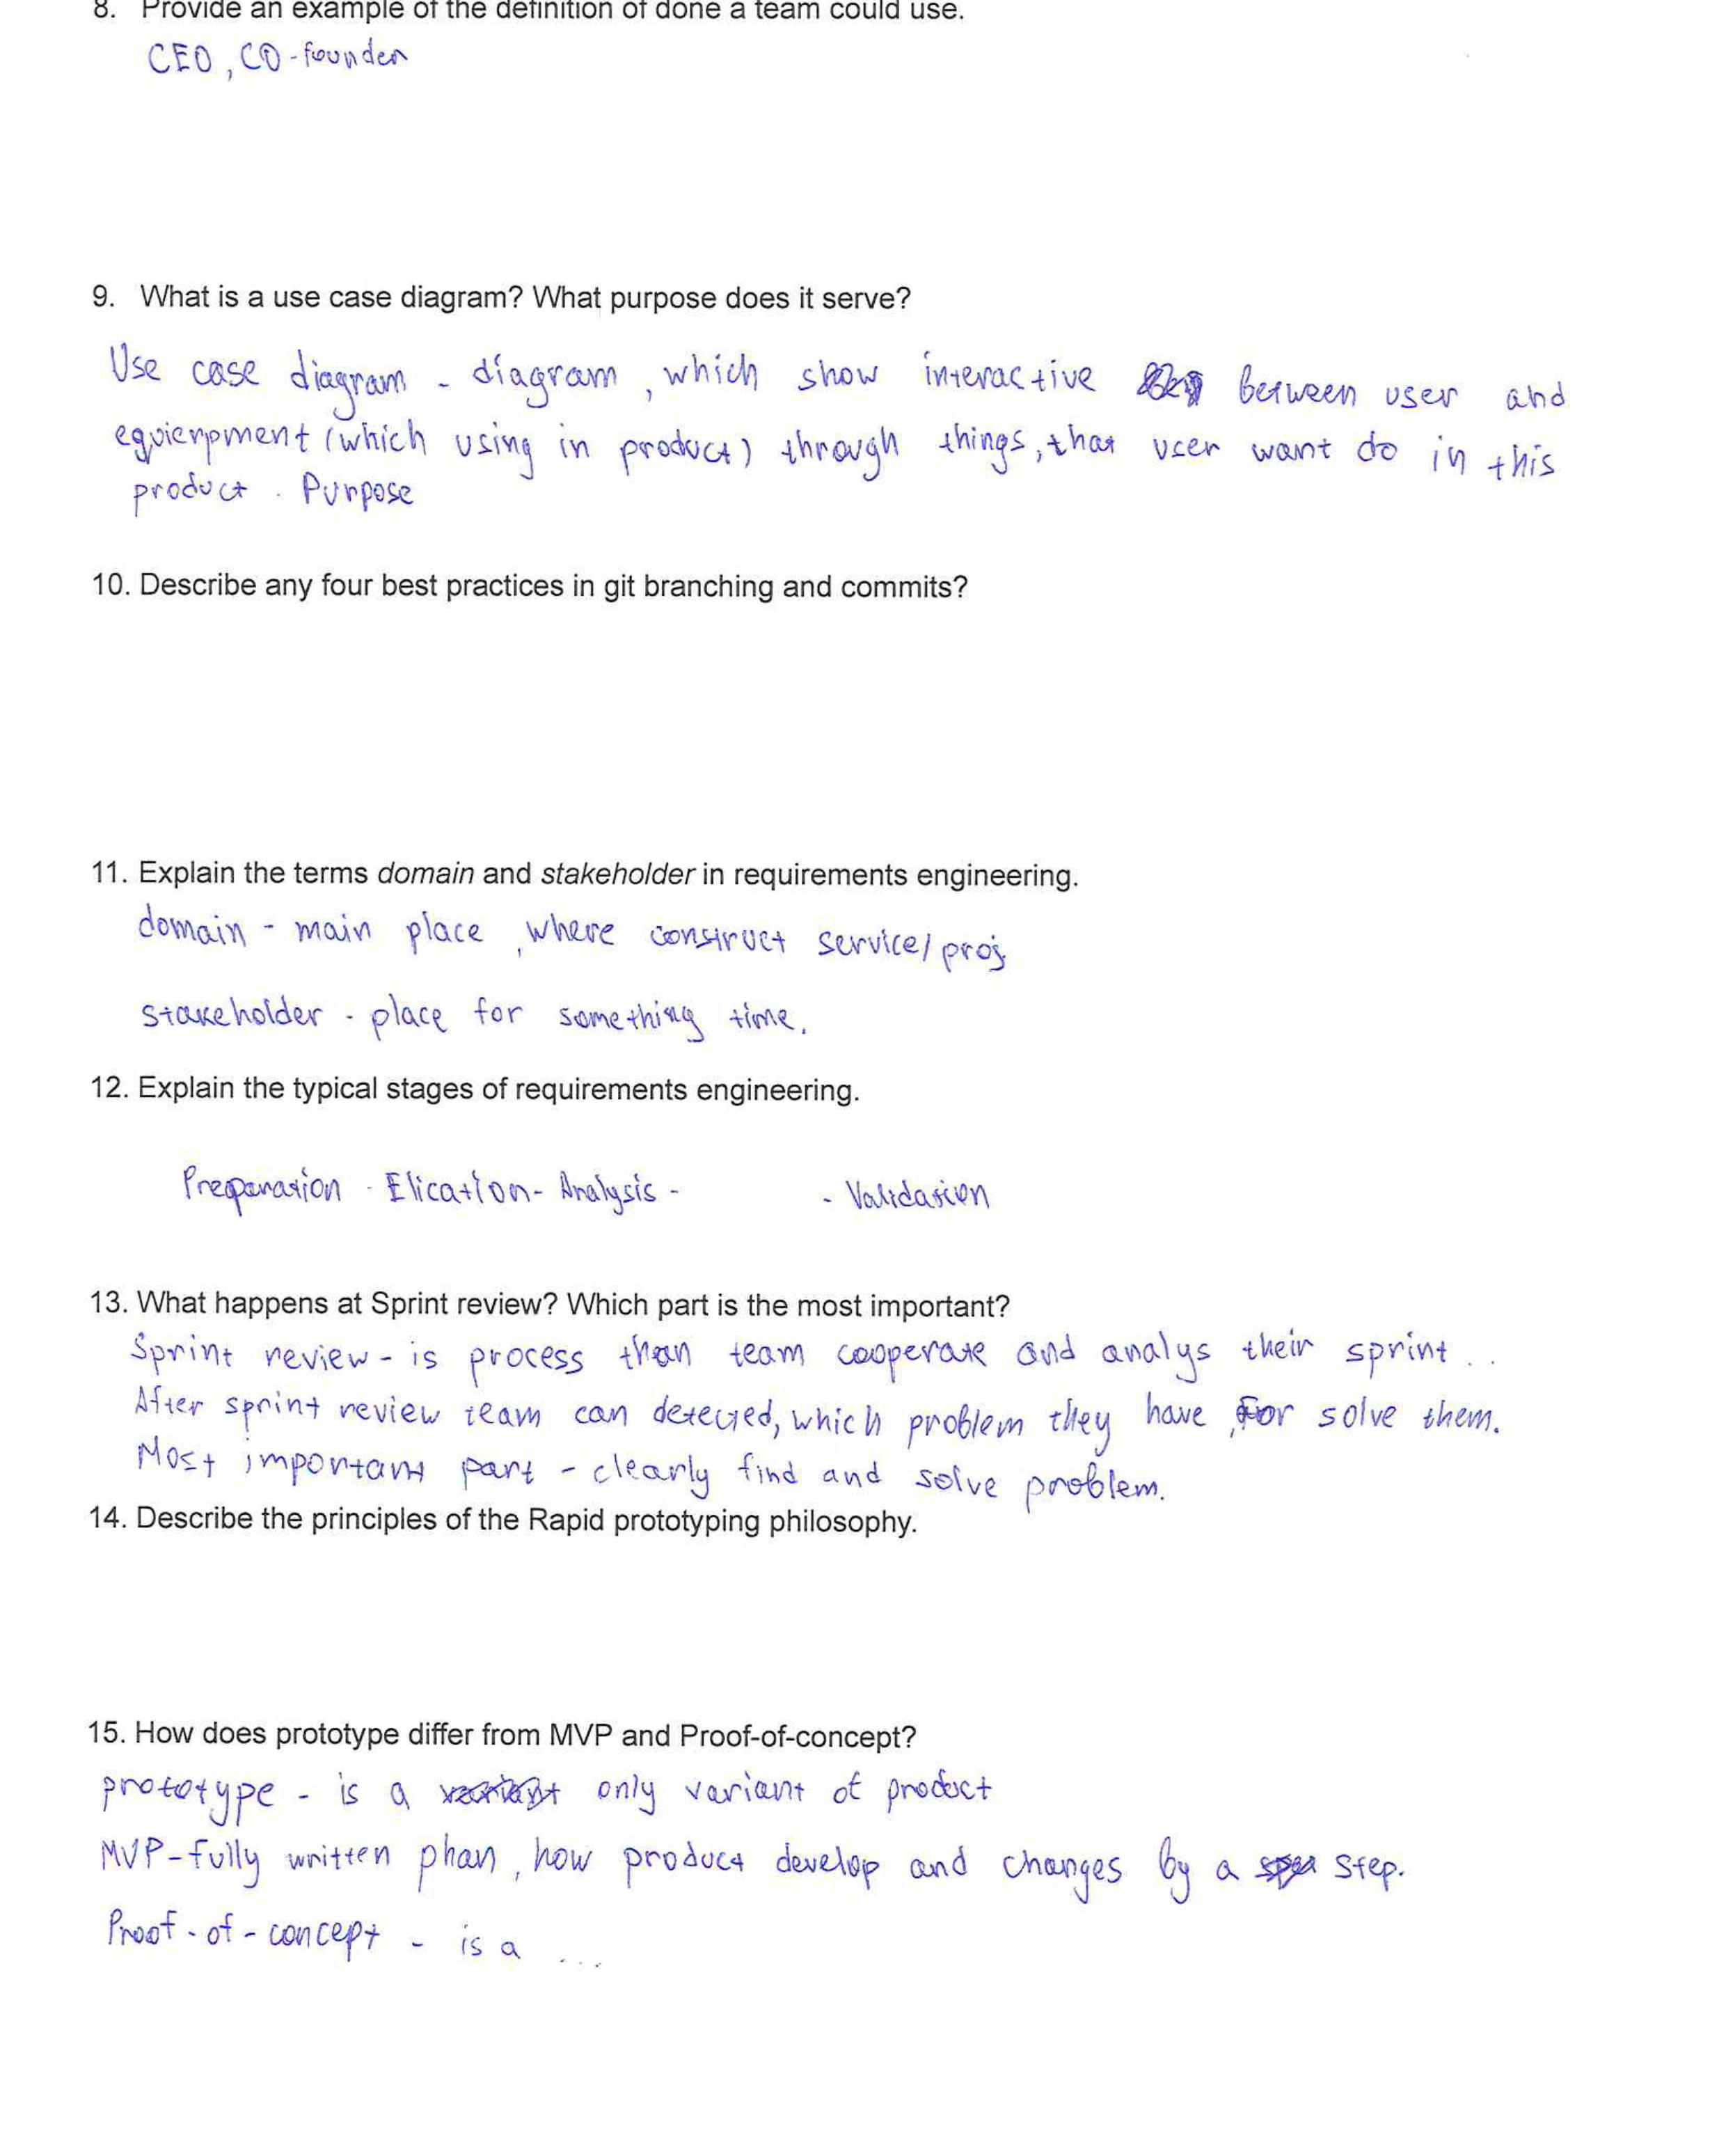 8. Provide an example of the definition of done a team could use.
CEO, CO-founder
9. What is a use case diagram? What purpose does it serve?
Use case diagram - diagram, which show interactive between user and
equierpment (which using in product) through things, that user want do in this
product. Purpose
10. Describe any four best practices in git branching and commits?
11. Explain the terms domain and stakeholder in requirements engineering.
domain - main place, where construct service/proj.
stakeholder - place for something time.
12. Explain the typical stages of requirements engineering.
Preparation - Elication - Analysis - - Validation
13. What happens at Sprint review? Which part is the most important?
Sprint review - is process than team cooperate and analys their sprint..
After sprint review team can detected, which problem they have, for solve them.
Most important part - clearly find and solve problem.
14. Describe the principles of the Rapid prototyping philosophy.
15. How does prototype differ from MVP and Proof-of-concept?
prototype - is a only variant of product
MVP - fully written phan, how product develop and changes by a step.
Proof-of-concept - is a ...